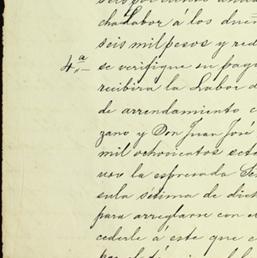 cha Labor á los due
seis mil pesos y red
4.ª— se verifique su pag
recibirá la Labor d
de arrendamiento c
zano y Don Juan José
mil ochocientos
la espresada
sula sétima de dic
para arreglarse con e
cederle á este que c